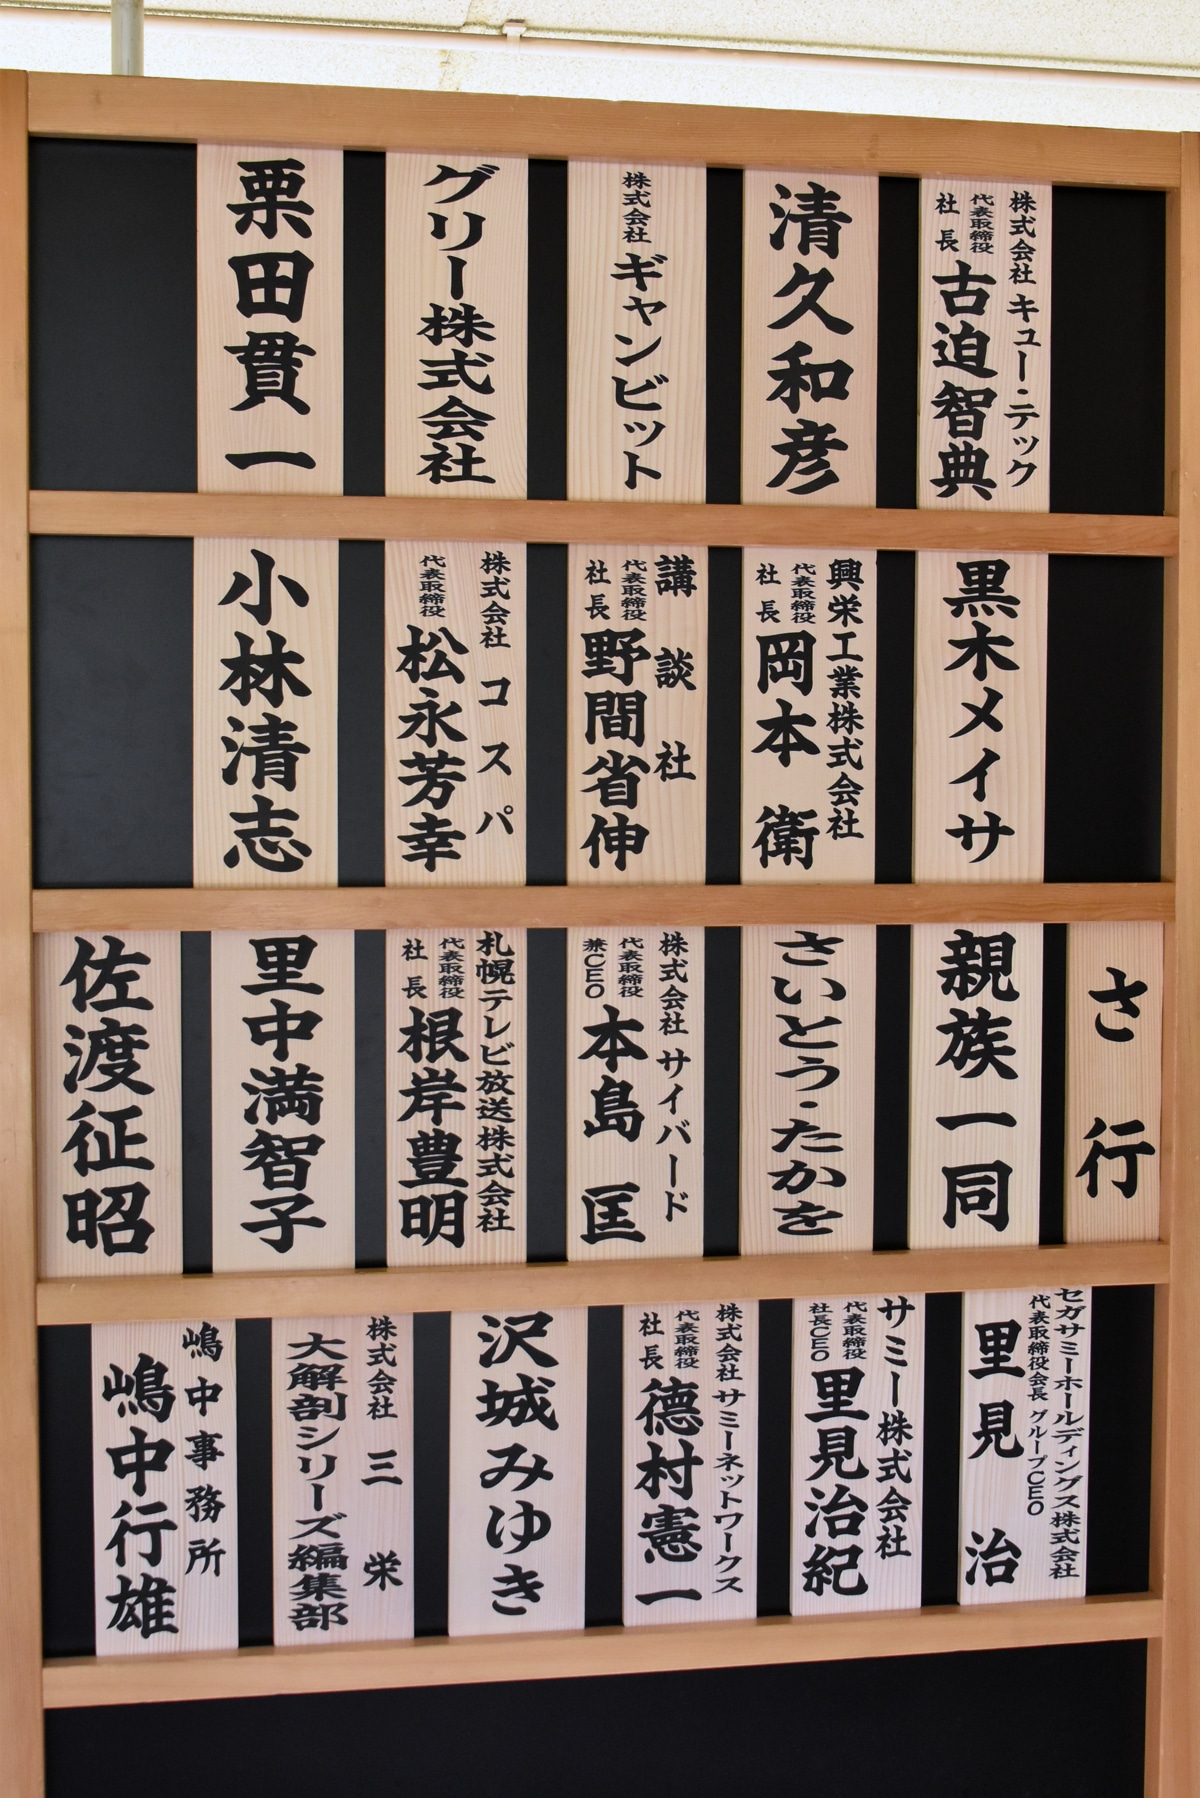 株式会社 キュー・テック
代表取締役
社長
古迫智典
清久和彦
株式会社 ギャンビット
グリー株式会社
栗田貫一
黒木メイサ
興栄工業株式会社
代表取締役
社長
岡本 衛
講談社
代表取締役
社長
野間省伸
株式会社 コスパ
代表取締役
松永芳幸
小林清志
さ行
親族一同
さいとう・たかを
株式会社 サイバード
代表取締役
兼CEO
本島 匡
札幌テレビ放送株式会社
代表取締役
社長
根岸豊明
里中満智子
佐渡征昭
セガサミーホールディングス株式会社
代表取締役会長 グループCEO
里見 治
サミー株式会社
代表取締役
社長CEO
里見治紀
株式会社 サミーネットワークス
代表取締役
社長
德村憲一
沢城みゆき
株式会社 三栄
大解剖シリーズ編集部
嶋中事務所
嶋中行雄